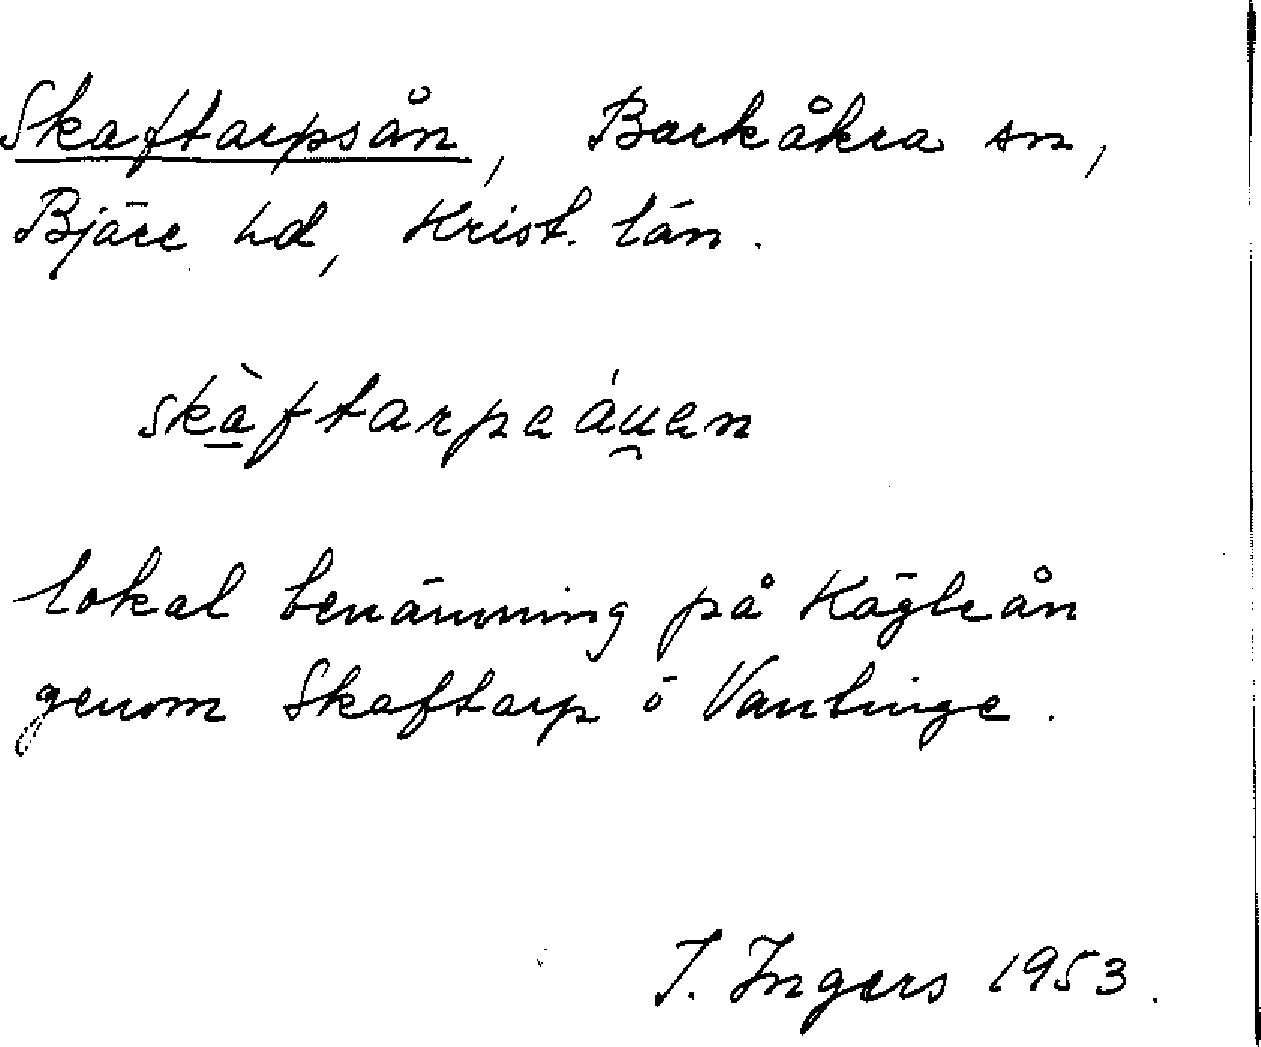 Skaftarpsån, Barkåkra sn,
Bjäre hd, Krist. län.
skà̱ftarpaáu̯an
lokal benämning på Kägleån
genom Skaftarp o Vantinge.
I. Ingers 1953.